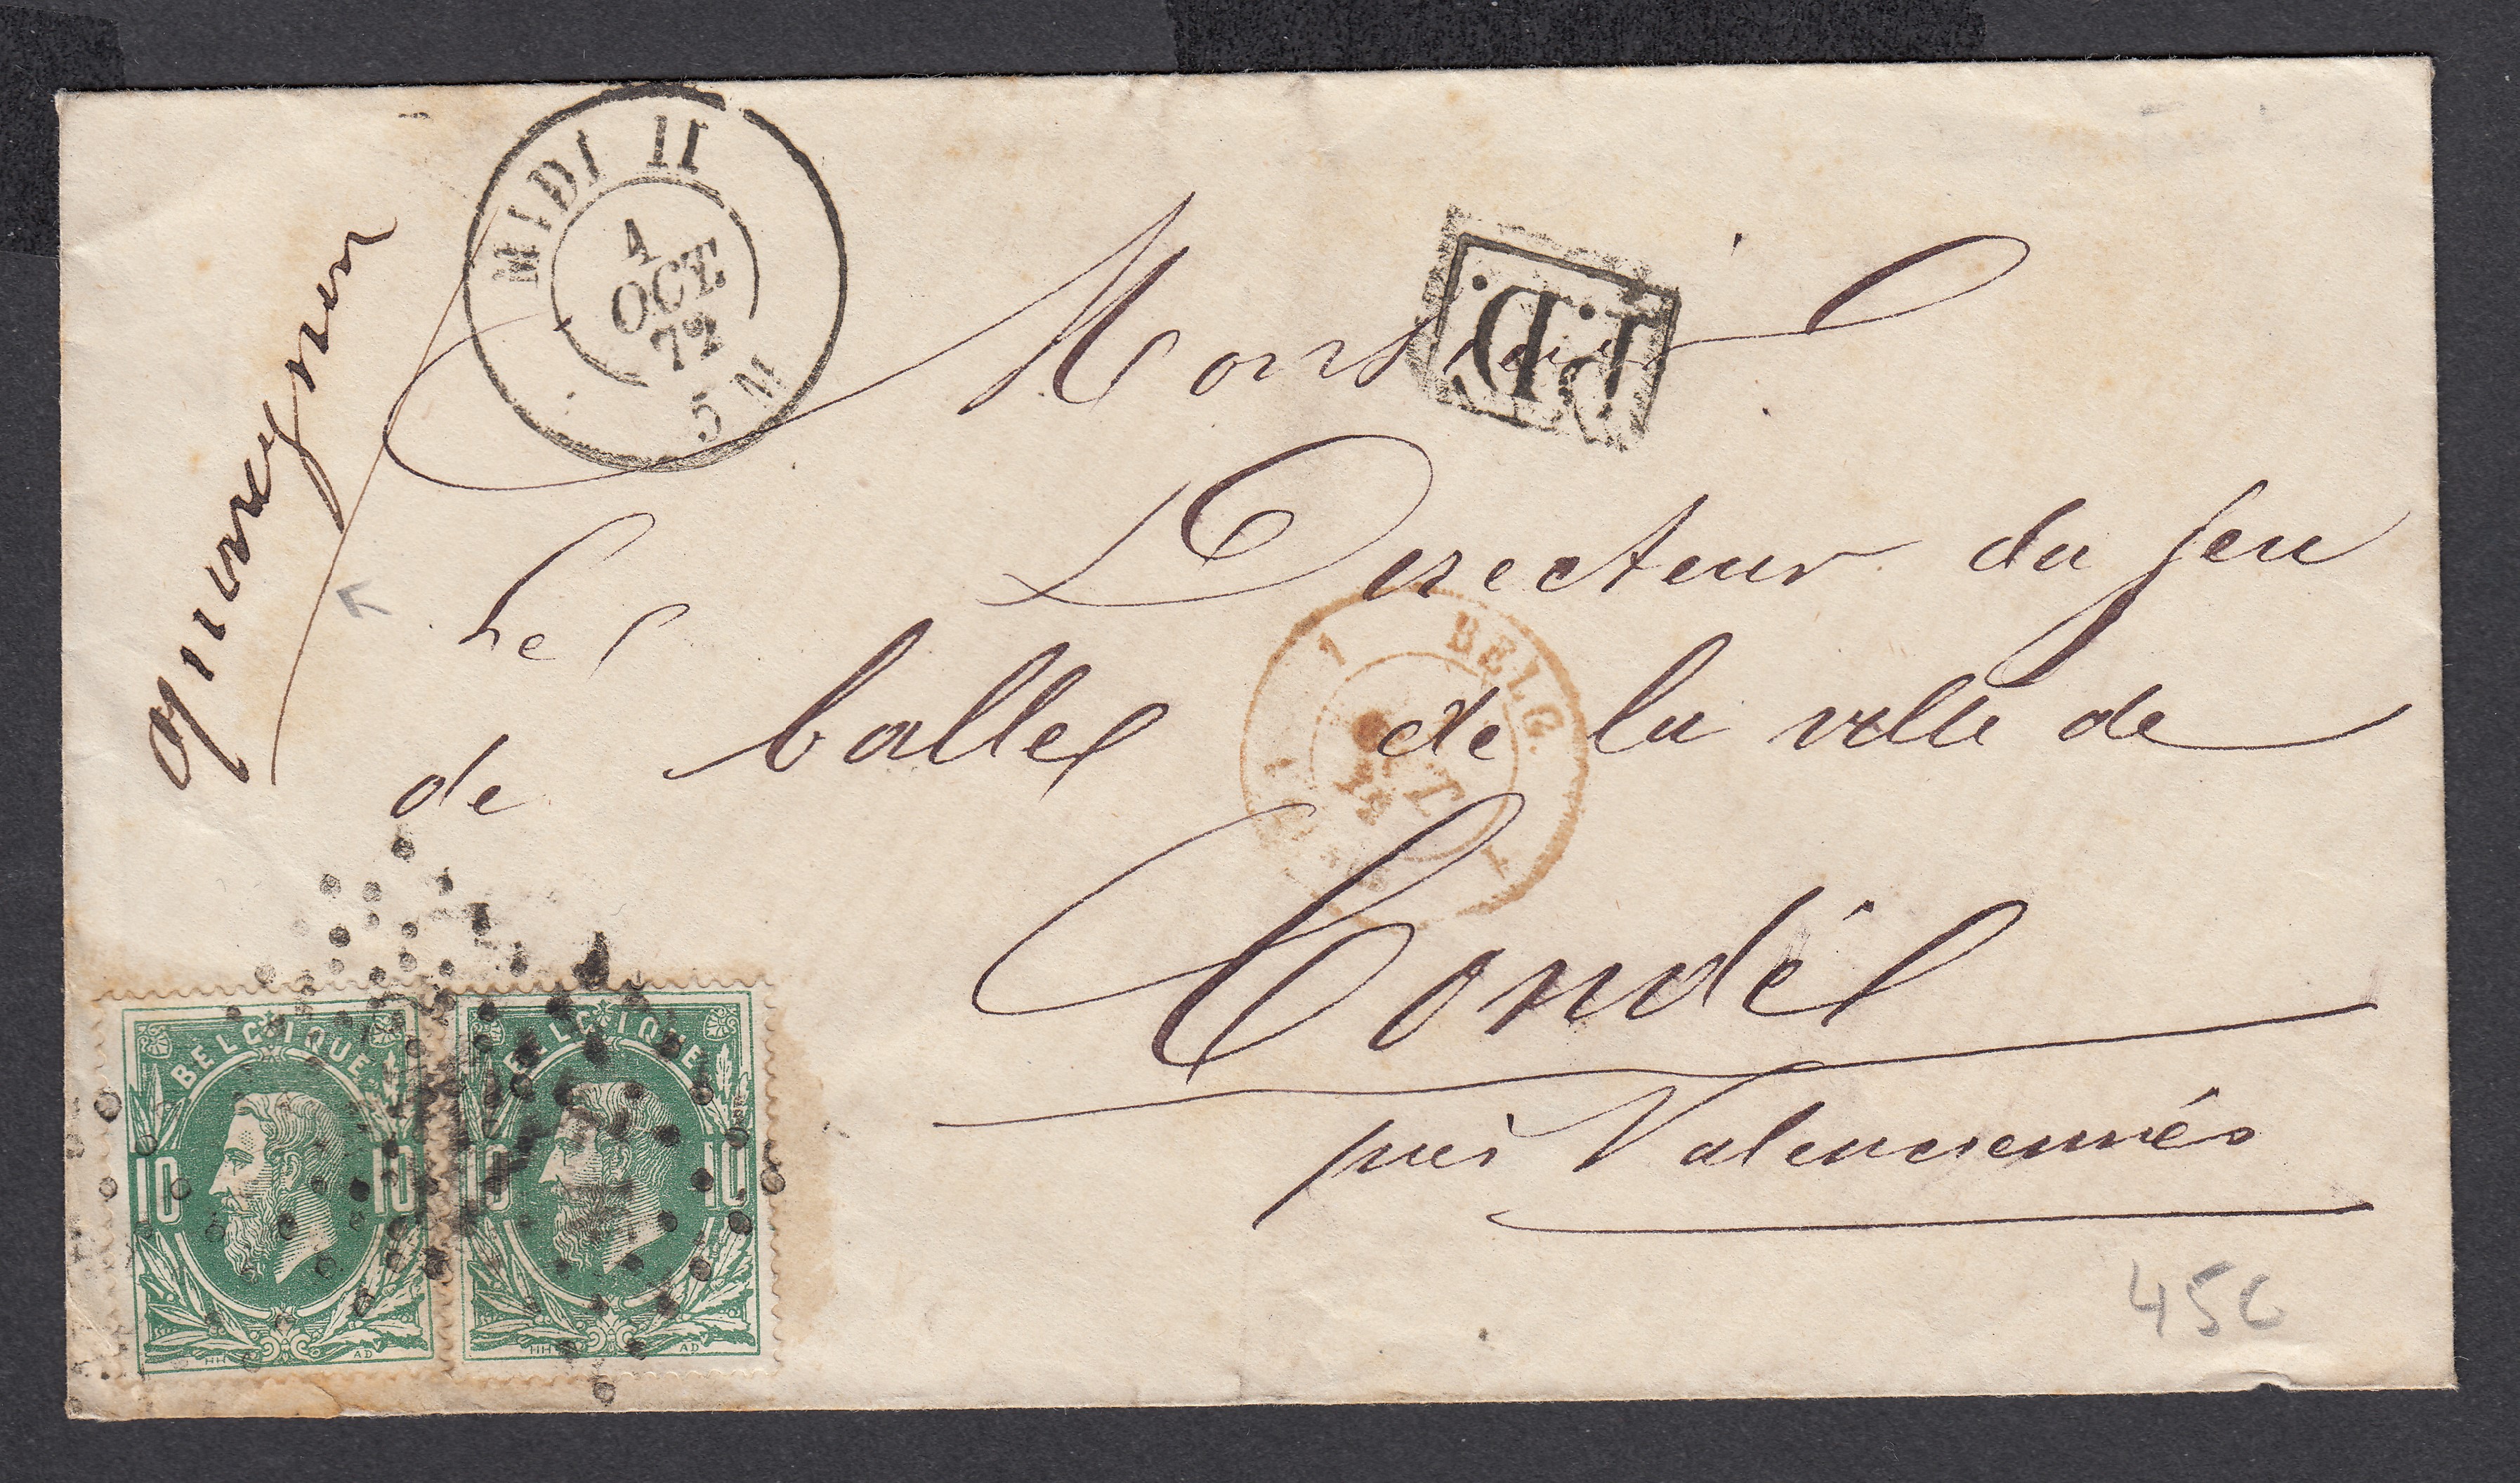 MIDI II
4
OCT.
72
5 M
P.D.
Monsieur
Le Directeur du Jeu
de balles de la ville de
Condé
près Valenciennes
BELG.
BELGIQUE
10 10
HH AD
BELGIQUE
10 10
HH AD
456